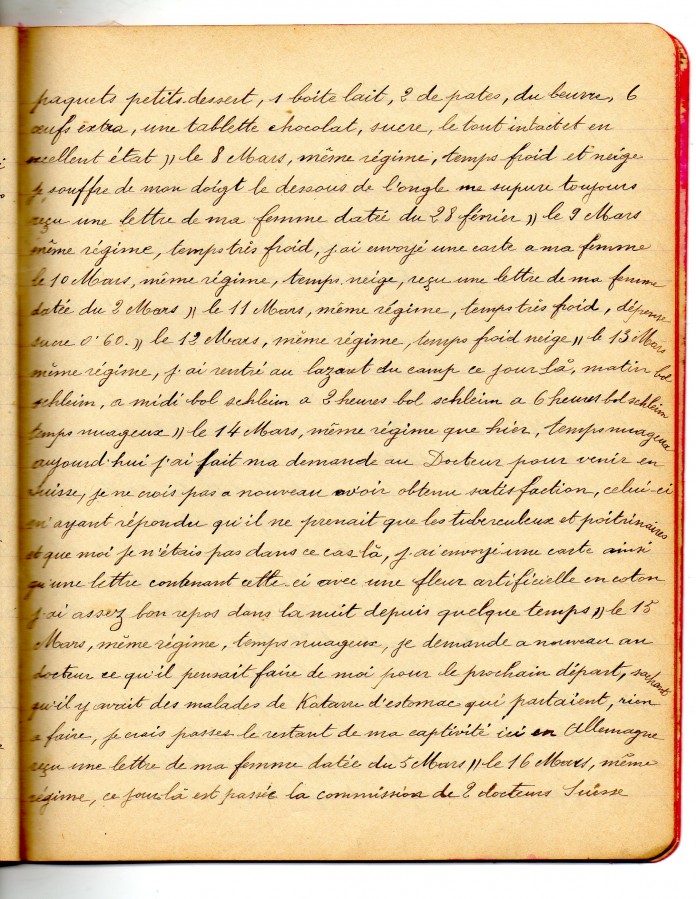 paquets petits-dessert, 1 boite lait, 2 de pates, du beurre, 6
œufs extra, une tablette chocolat, sucre, le tout intact et en
excellent état // le 8 Mars, même régime, temps froid et neige
je souffre de mon doigt le dessous de l'ongle me supure toujours
reçu une lettre de ma femme datée du 28 février // le 9 Mars
même régime, temps très froid, j'ai envoyé une carte a ma femme
le 10 Mars, même régime, temps neige, reçu une lettre de ma femme
datée du 2 Mars // le 11 Mars, même régime, temps très froid, dépense
sucre 0'60. // le 12 Mars, même régime, temps froid neige // le 13 Mars
même régime, j'ai rentré au lazaret du camp ce jour là, matin bol
schleim, a midi bol schleim a 3 heures bol schleim a 6 heures bol schleim
temps nuageux // le 14 Mars, même régime que hier, temps nuageux
aujourd'hui j'ai fait ma demande au Docteur pour venir en
Suisse, je ne crois pas a nouveau avoir obtenu satisfaction, celui-ci
m'ayant répondu qu'il ne prenait que les tuberculeux et poitrinaires
et que moi je n'étais pas dans ce cas là, j'ai envoyé une carte ainsi
qu'une lettre contenant celle-ci avec une fleur artificielle en coton
j'ai assez bon repos dans la nuit depuis quelque temps // le 15
Mars, même régime, temps nuageux, je demande a nouveau au
docteur ce qu'il pensait faire de moi pour le prochain départ, sachant
qu'il y avait des malades de Katarre d'estomac qui partaient, rien
a faire, je crois passer le restant de ma captivité ici en Allemagne
reçu une lettre de ma femme datée du 5 Mars // le 16 Mars, même
régime, ce jour là est passée la commission de 2 docteurs Suisse